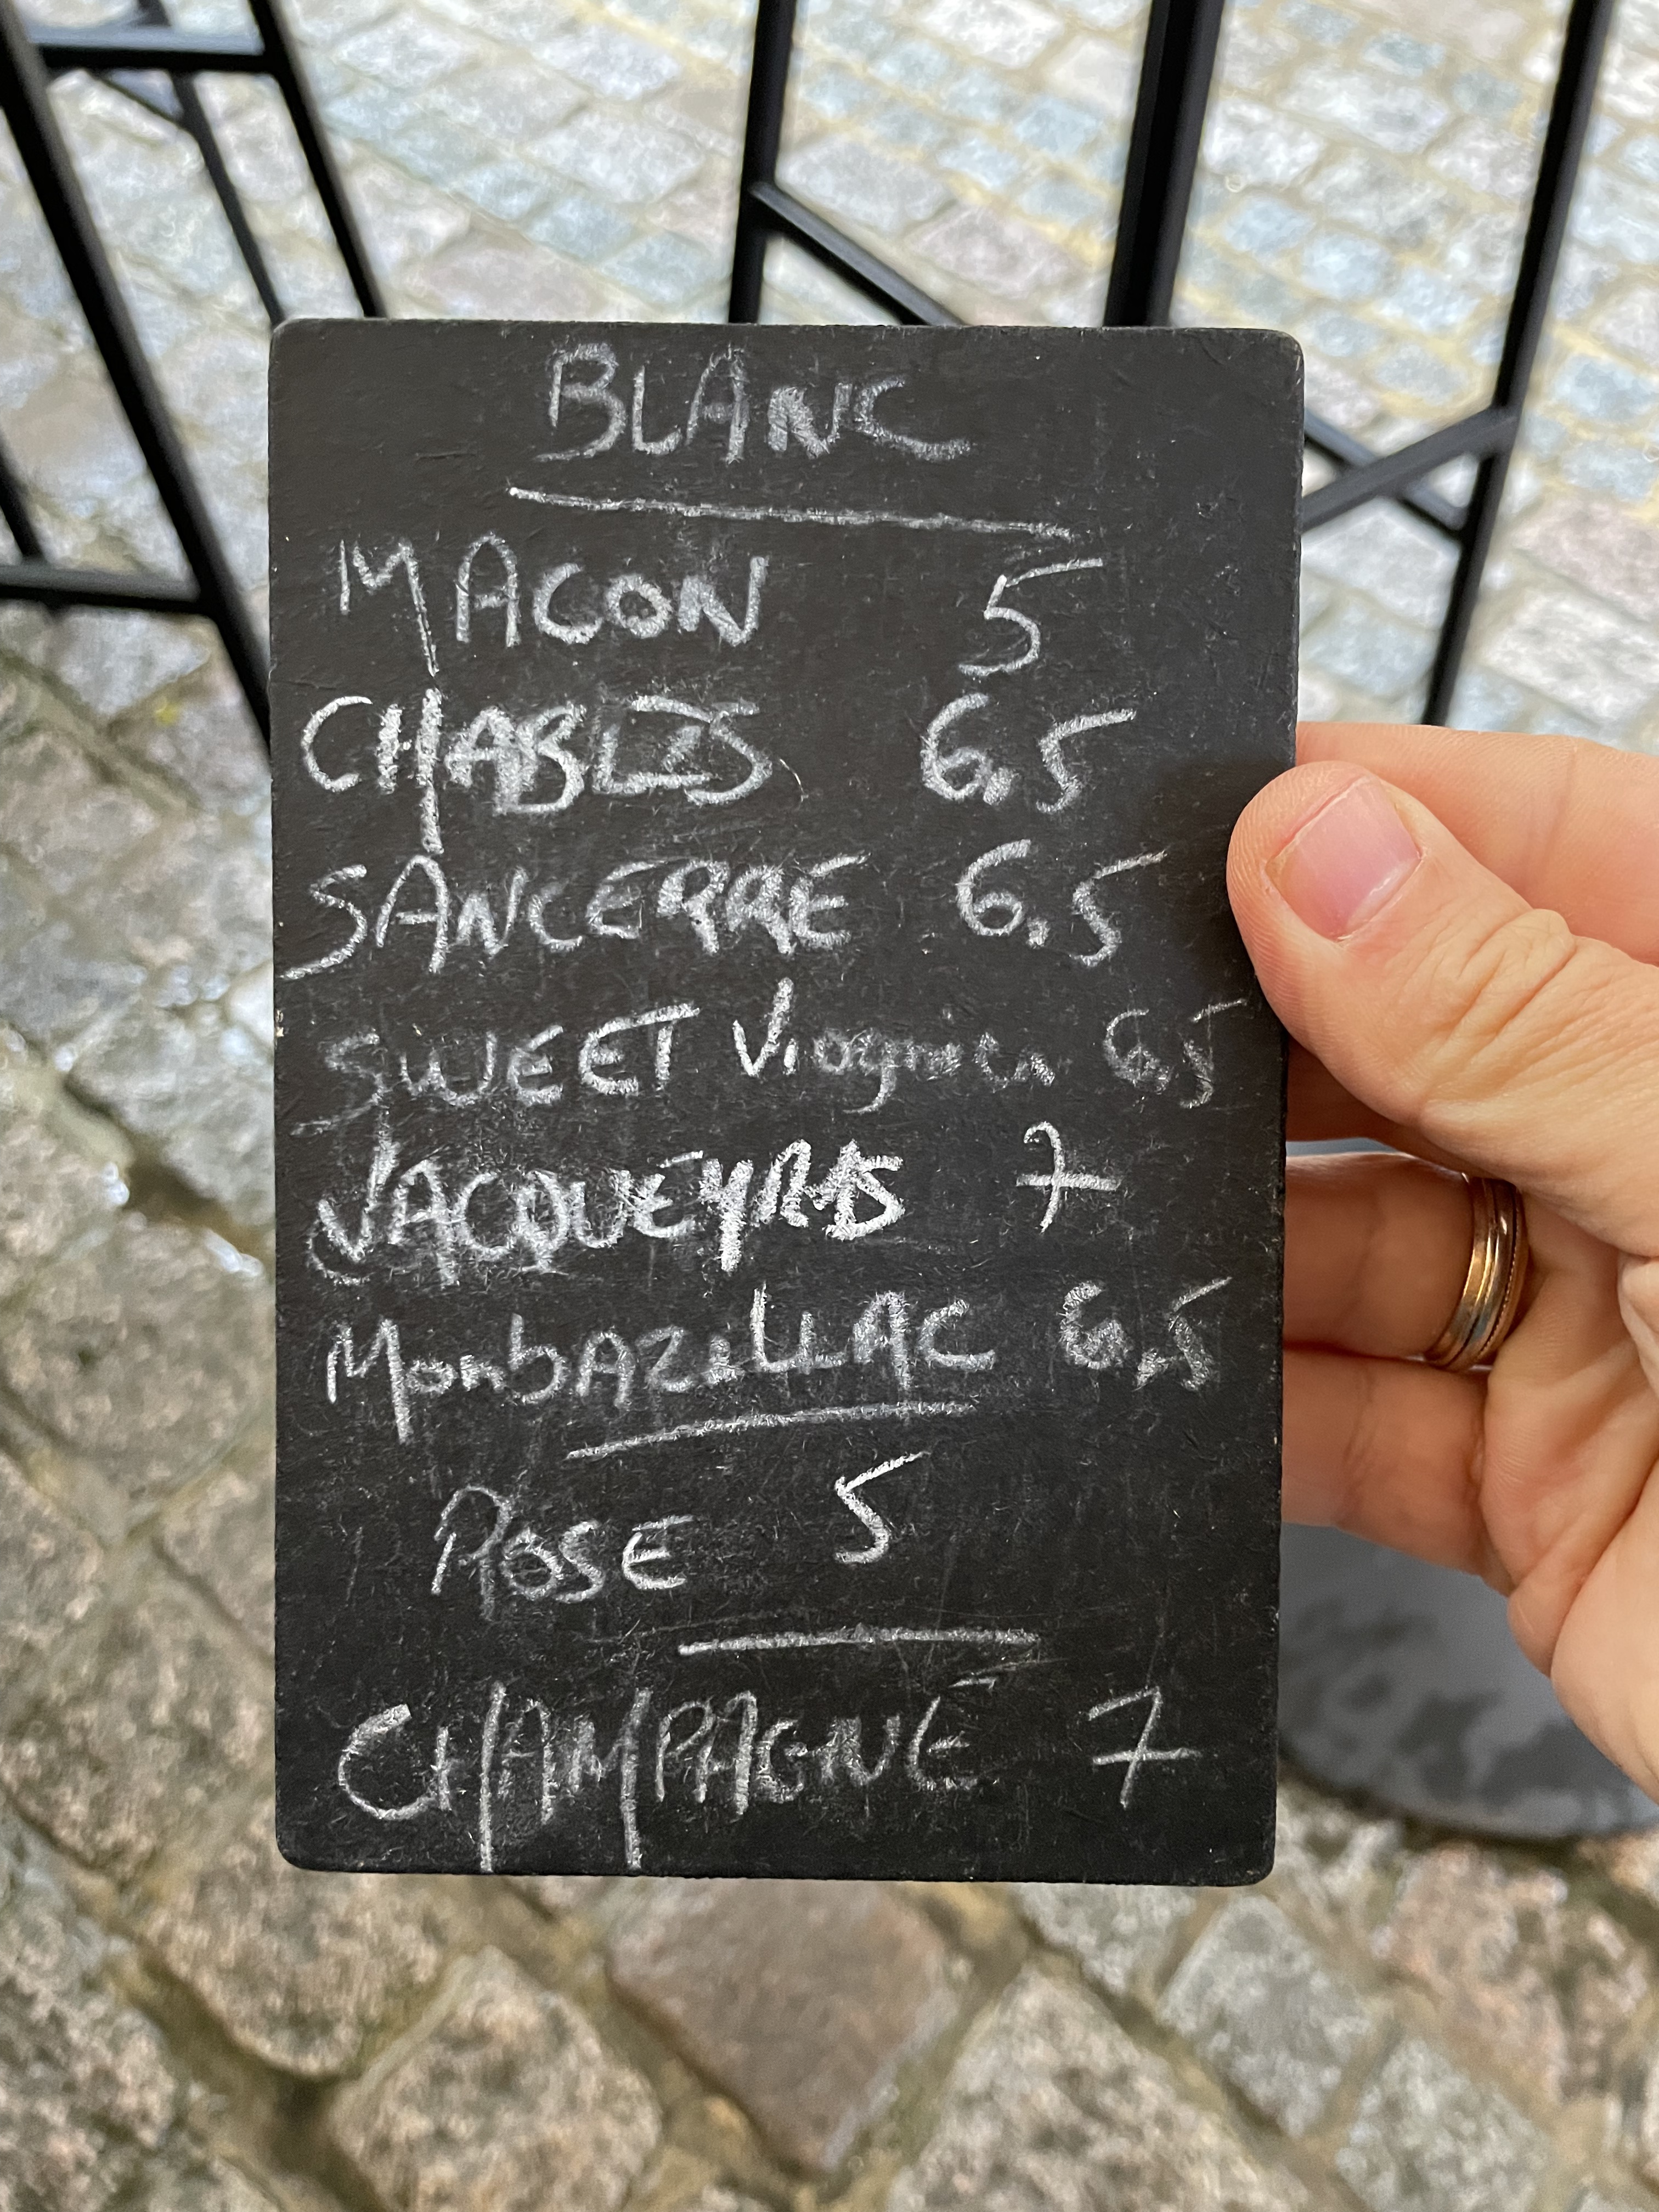 BLANC
MACON 5
CHABLIS 6,5
SANCERRE 6,5
SWEET Viognier 6,5
VACQUEYRAS 7
MonbAZiLLAC 6,5
ROSE 5
CHAMPAGNE 7